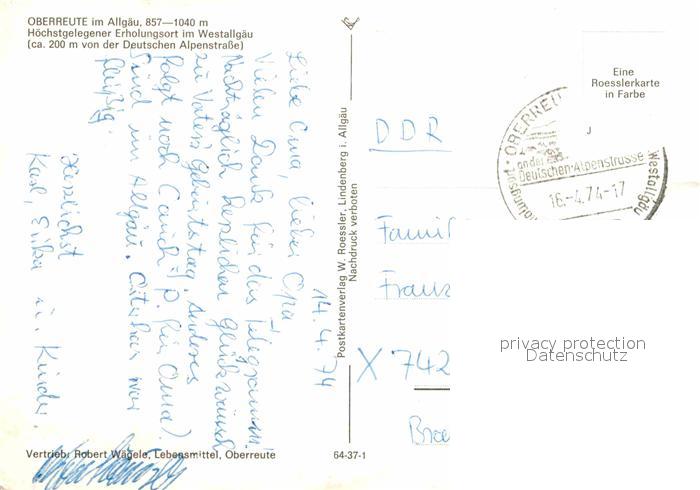 OBERREUTE im Allgäu, 857—1040 m
Höchstgelegener Erholungsort im Westallgäu
(ca. 200 m von der Deutschen Alpenstraße)
14. 4. 74
Liebe Oma, lieber Opa
Vielen Dank für das Telegramm!
Nachträglich herzlichen Glückwunsch
zu Vaters Geburtstag. Anderes
folgt noch (auch für Oma)
Sind im Allgäu. war
fleißig.
Herzlichst
Karl, Erika u. Kinder.
Vertrieb: Robert Wägele, Lebensmittel, Oberreute
64-37-1
Postkartenverlag W. Roessler, Lindenberg i. Allgäu
Nachdruck verboten
Eine
Roesslerkarte
in Farbe
OBERREU
an der
Deutschen-Alpenstrasse
16.-4.74-17
holungsort
Westallgäu
DDR
Famil
Franz
X 742
privacy protection
Datenschutz